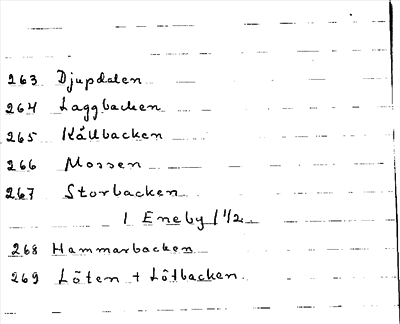 263 Djupdalen
264 Laggbacken
265 Källbacken
266 Mossen
267 Storbacken
1 Eneby 1 1/2
268 Hammarbacken
269 Löten + Lötbacken